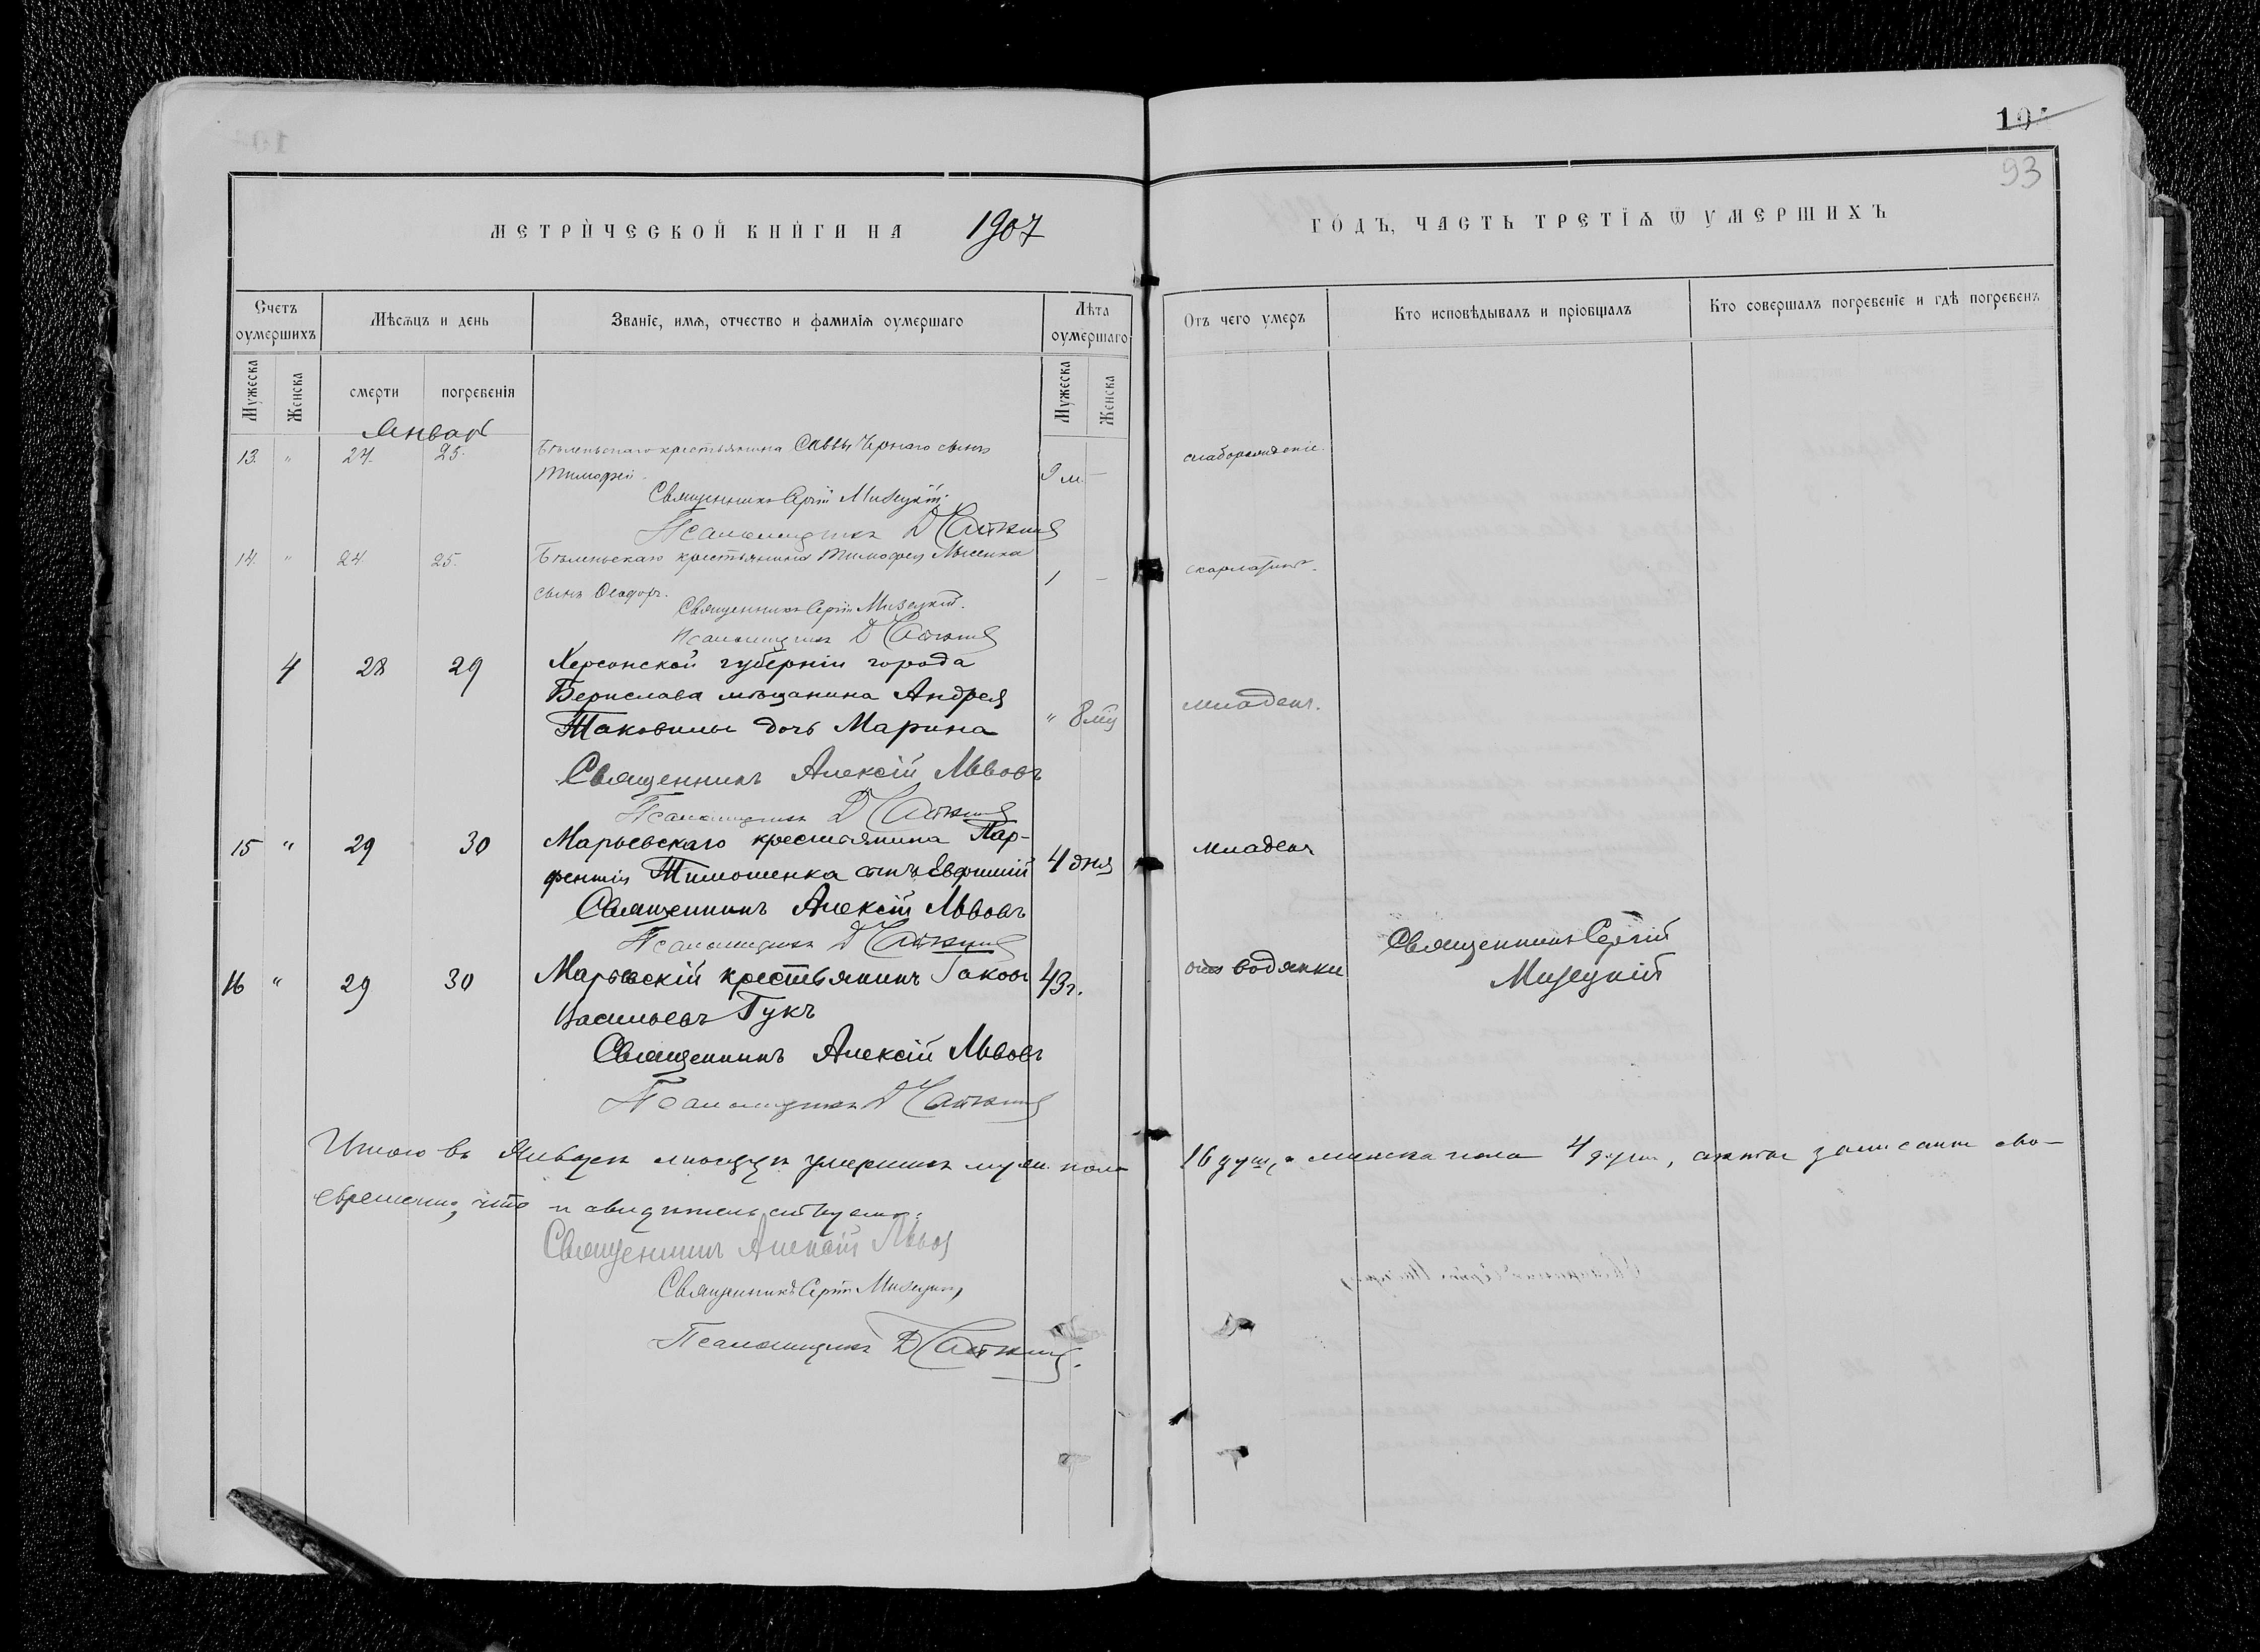 104
93
МЕТРИЧЕСКОЙ КНИГИ НА 1907
ГОДЪ, ЧАСТЬ ТРЕТІѦ Ѿ УМЕРШИХЪ
Счетъ оумершихъ
Мѣсѧцъ и день
Званіе, имѧ, отчество и фамиліѧ оумершаго
Лѣта оумершаго
Отъ чего умеръ
Кто исповѣдывалъ и пріобщалъ
Кто совершалъ погребеніе и гдѣ погребенъ
Мужеска
Женска
смерти
погребенія
Мужеска
Женска
Январь
13. " 24. 25. крестьянина Саввы Чернаго сынъ
Тимофей. 9 м. — слаборожденіе.
Священникъ Сергій Мизецкій.
Псаломщикъ Д
14. " 24. 25. крестьянина Тимофея Лысенка
сынъ Ѳеодоръ. 1 — скарлатин.
Священникъ Сергій Мизецкій.
Псаломщикъ Д
4 28 29 Херсонской губерніи города
Берислава мѣщанина Андрея
дочь Марина " 8 мц младенч.
Священникъ Алексій Львовъ
Псаломщикъ Д
15 " 29 30 Марьевскаго крестьянина Пар-
фентія Тимошенка сынъ Евфимій 4 дня младенч
Священникъ Алексій Львовъ
Псаломщикъ Д
16 " 29 30 Марьевскій крестьянинъ Іаковъ 43 г. отъ водянки Священникъ Сергій
Васильевъ Гукъ Мизецкій
Священникъ Алексій Львовъ
Псаломщикъ Д
Итого въ Январѣ мѣсяцѣ умершихъ муж. пола 16 душ, а женска пола 4 души, акты записаны сво-
евременно, что и свидѣтельствуемъ:
Священникъ Алексій Львов
Священникъ Сергій Мизецкій
Псаломщикъ Д